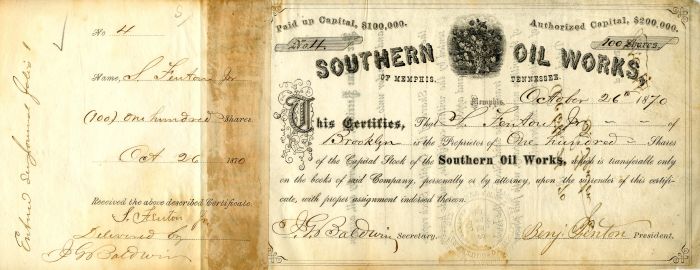 No 4
Name, S. Fenton Jr
(100) One hundred Shares
Oct 26 1870
Received the above described Certificate.
S. Fenton Jr
Delivered by
J G Baldwin
Entered in Journal folio 1
Paid up Capital, $100,000.
Authorized Capital, $200,000.
No. 4
100 Shares.
SOUTHERN OIL WORKS,
OF MEMPHIS, TENNESSEE.
Memphis, October 26th 1870
This Certifies, That S. Fenton Jr. of
Brooklyn is the Proprietor of One hundred Shares
of the Capital Stock of the Southern Oil Works, which is transferable only
on the books of said Company, personally or by attorney, upon the surrender of this certifi-
cate, with proper assignment indorsed thereon.
J G Baldwin Secretary.
Benj Fenton President.